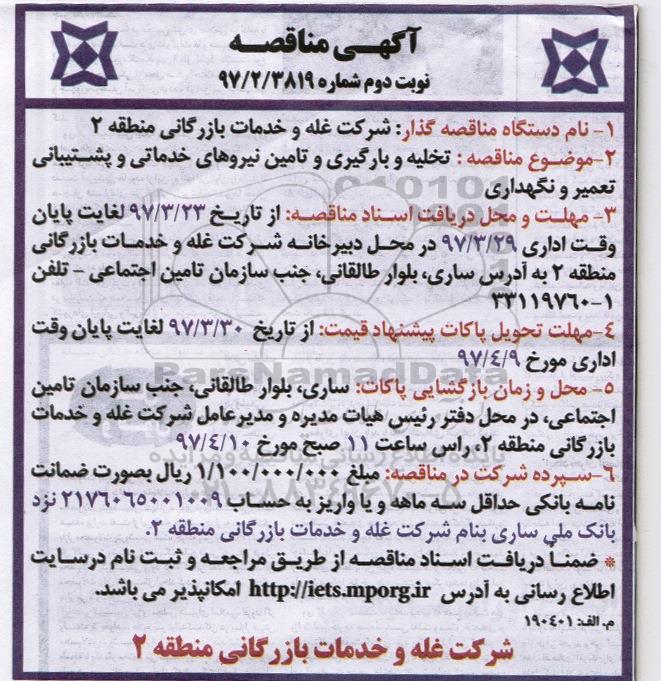 آگهی مناقصه
نوبت دوم شماره ۹۷/۲/۳۸۱۹
۱- نام دستگاه مناقصه گذار: شرکت غله و خدمات بازرگانی منطقه ۲
۲-موضوع مناقصه : تخلیه و بارگیری و تامین نیروهای خدماتی و پشتیبانی
تعمیر و نگهداری
۳- مهلت و محل دریافت اسناد مناقصه: از تاریخ ۹۷/۳/۲۳ لغایت پایان
وقت اداری ۹۷/۳/۲۹ در محل دبیرخانه شرکت غله و خدمات بازرگانی
منطقه ۲ به آدرس ساری، بلوار طالقانی، جنب سازمان تامین اجتماعی - تلفن
۳۳۱۱۹۷۶۰-۱
۴-مهلت تحویل پاکات پیشنهاد قیمت: از تاریخ ۹۷/۳/۳۰ لغایت پایان وقت
اداری مورخ ۹۷/۴/۹
ParsNamadData
۵- محل و زمان بازگشایی پاکات: ساری، بلوار طالقانی، جنب سازمان تامین
اجتماعی، در محل دفتر رئیس هیات مدیره و مدیرعامل شرکت غله و خدمات
بازرگانی منطقه ۲، راس ساعت ۱۱ صبح مورخ ۹۷/۴/۱۰
۶-سپرده شرکت در مناقصه: مبلغ ۱/۱۰۰/۰۰۰/۰۰۰ ریال بصورت ضمانت
نامه بانکی حداقل سه ماهه و یا واریز به حساب ۲۱۷۶۰۶۵۰۰۱۰۰۹ نزد
بانک ملی ساری بنام شرکت غله و خدمات بازرگانی منطقه ۲.
* ضمنا دریافت اسناد مناقصه از طریق مراجعه و ثبت نام درسایت
اطلاع رسانی به آدرس http://iets.mporg.ir امکانپذیر می باشد.
م. الف: ۱۹۰۴۰۱
شرکت غله و خدمات بازرگانی منطقه ۲